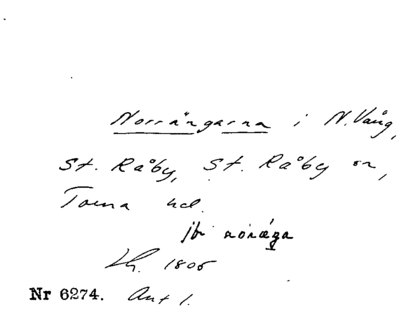 Norrängarna i N. Vång,
St. Råby, St. Råby sn,
Torna hd.
jfr noræŋa
Lh. 1805
Nr 6274. Ant 1.